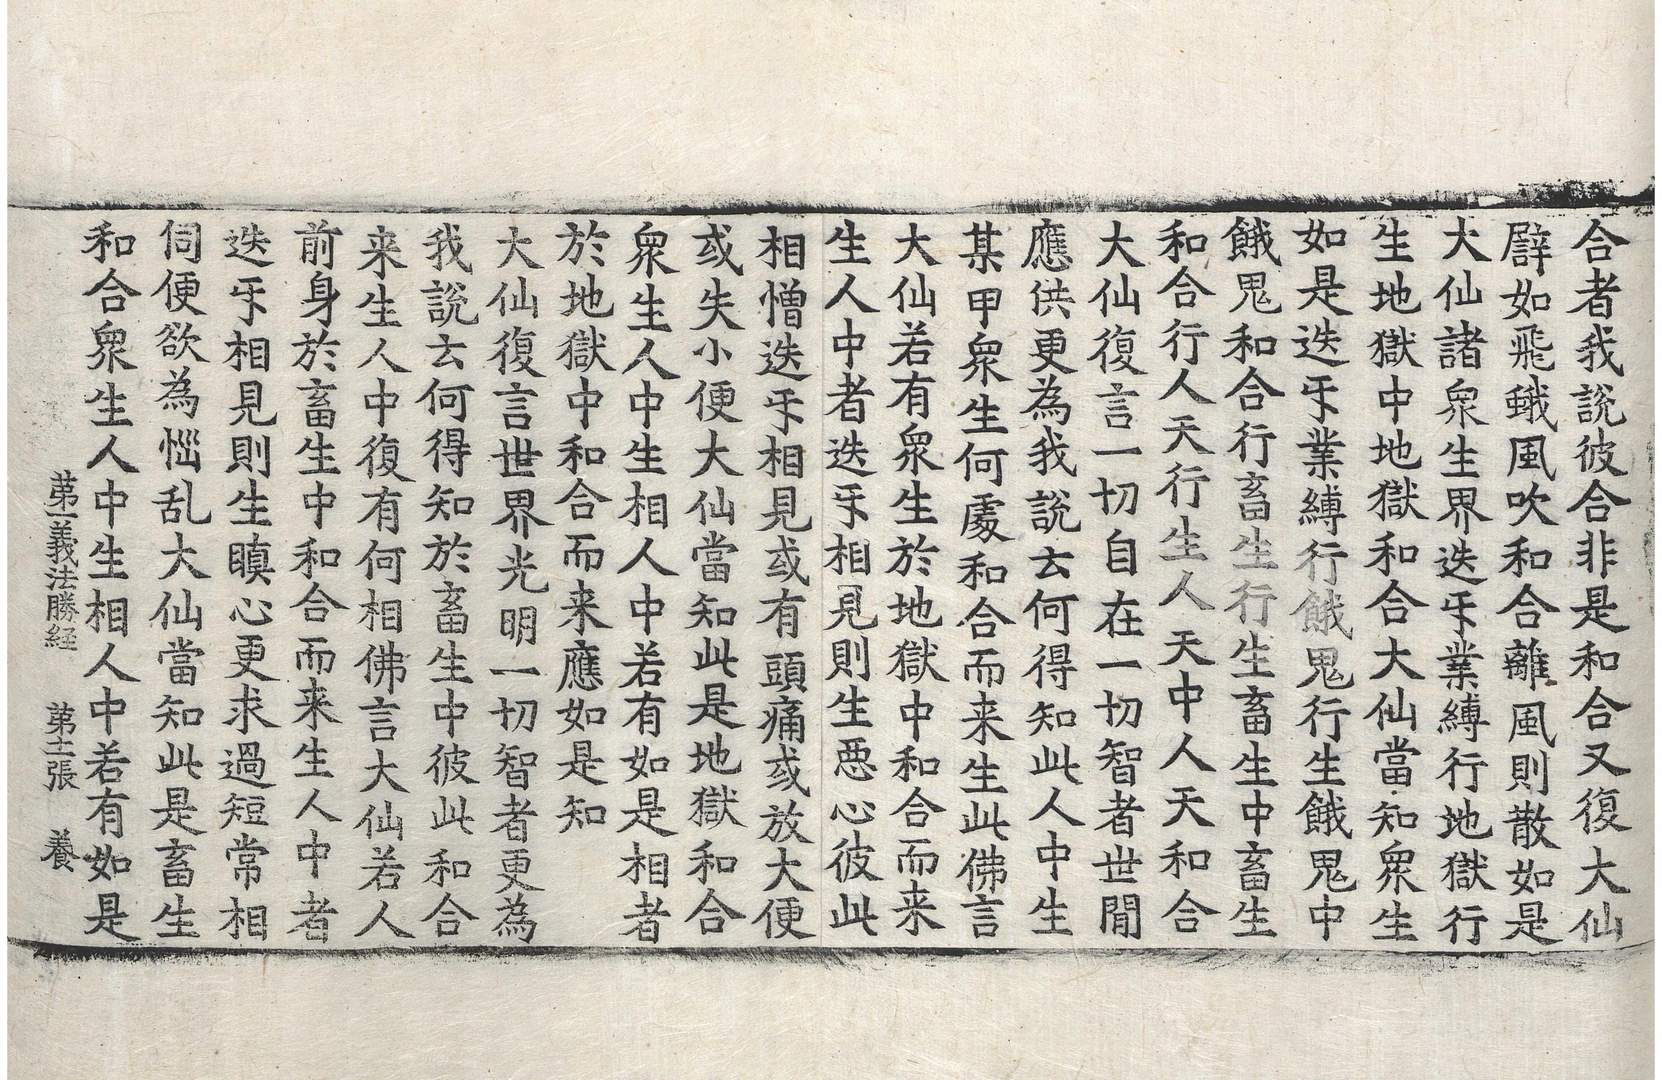 合者我說彼合非是和合又復大仙
譬如飛蛾風吹和合離風則散如是
大仙諸衆生界迭㸦業縛行地獄行
生地獄中地獄和合大仙當知衆生
如是迭㸦業縛行餓鬼行生餓鬼中
餓鬼和合行畜生行生畜生中畜生
和合行人天行生人天中人天和合
大仙復言一切自在一切智者世間
應供更為我說云何得知此人中生
某甲衆生何處和合而来生此佛言
大仙若有衆生於地獄中和合而来
生人中者迭㸦相見則生惡心彼此
相憎迭㸦相見或有頭痛或放大便
或失小便大仙當知此是地獄和合
衆生人中生相人中若有如是相者
於地獄中和合而来應如是知
大仙復言世界光明一切智者更為
我說云何得知於畜生中彼此和合
来生人中復有何相佛言大仙若人
前身於畜生中和合而来生人中者
迭㸦相見則生瞋心更求過短常相
伺便欲為惱乱大仙當知此是畜生
和合衆生人中生相人中若有如是
第一義法勝経 第十一張 養